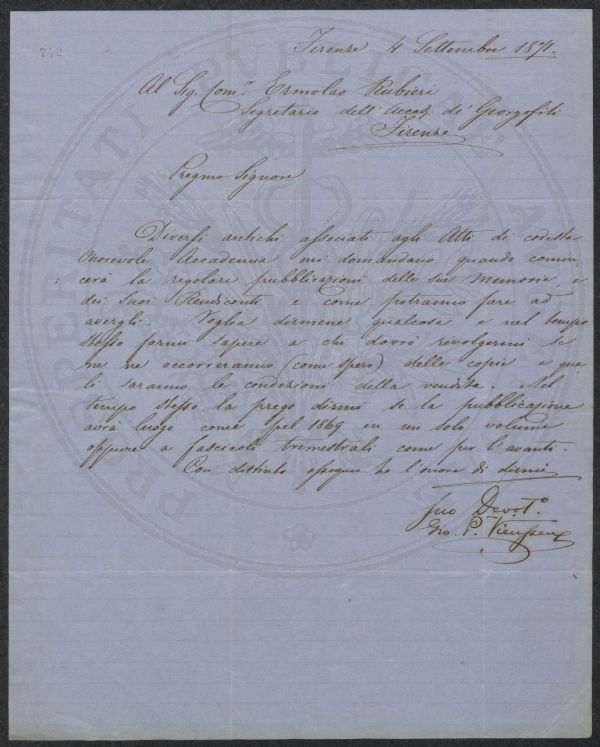 242
Firenze 4 Settembre 1871.
Al Sig. Com.r Ermolao Rubieri
Segretario dell' Accad. de' Georgofili
Firenze
Pregmo Signore
Diversi antichi associati agli Atti di codesta
Onorevole Accademia mi domandano quando comin
cerà la regolare pubblicazioni delle sue Memorie, e
dei suoi Rendiconti e come potranno fare ad
avergli. Voglia dirmene qualcosa e nel tempo
stesso farmi sapere a chi dovrò revolgermi se
me ne occorreranno (come spero) delle copie e qua
li saranno le condizioni della vendita. Nel
tempo stesso la prego dirmi se la pubblicazione
avrà luogo come pel 1869 in un solo volume
oppure a fascicoli trimestrali come per l'avanti.
Con distinto ossequio ho l'onore di dirmi
suo Devot.o
Gio. P. Vieusseux
PROSPERITATI PUBLICAE AU